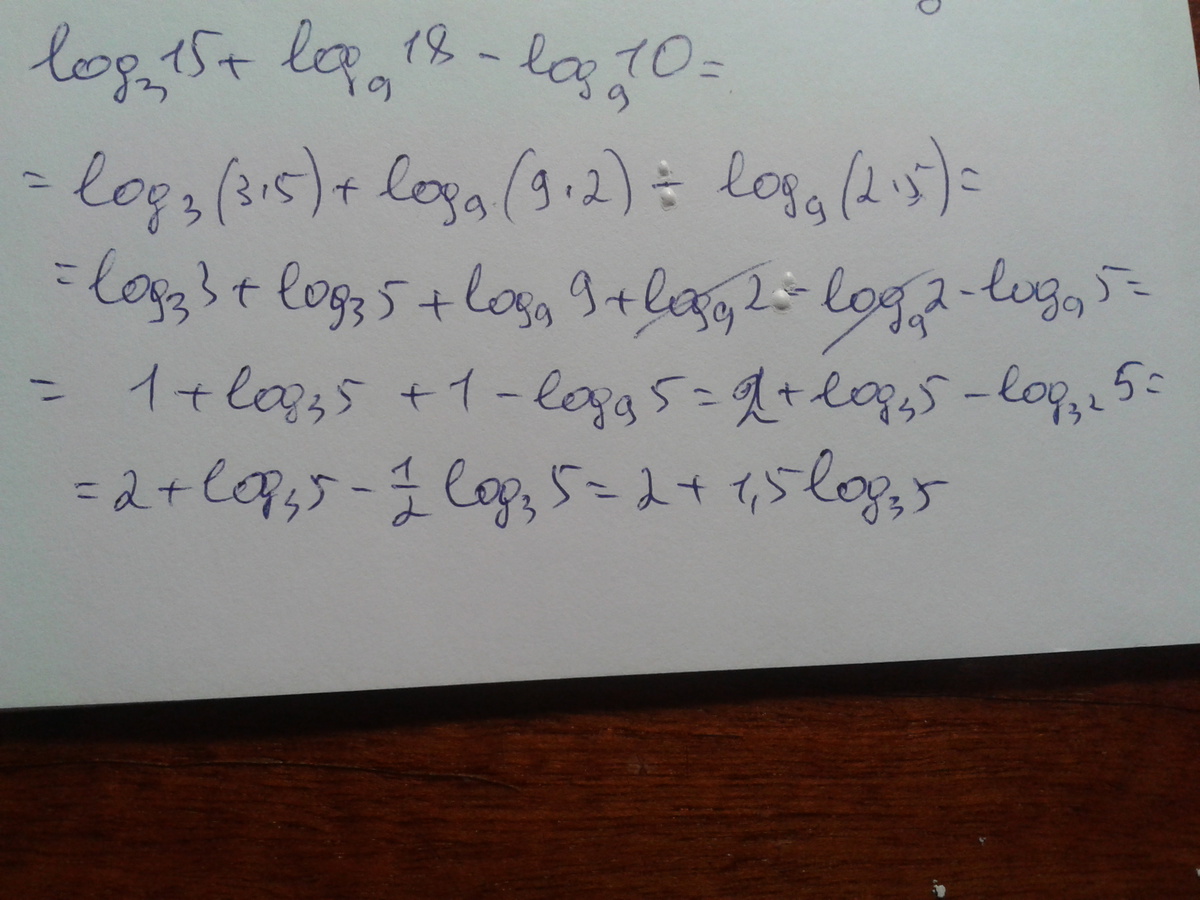 log₃15 + log₉18 - log₉10 =
= log₃(3·5) + log₉(9·2) ÷ log₉(2·5) =
= log₃3 + log₃5 + log₉9 + log₉2 - log₉2 - log₉5 =
= 1 + log₃5 + 1 - log₉5 = 2 + log₃5 - log₃²5 =
= 2 + log₃5 - 1/2 log₃5 = 2 + 1,5 log₃5